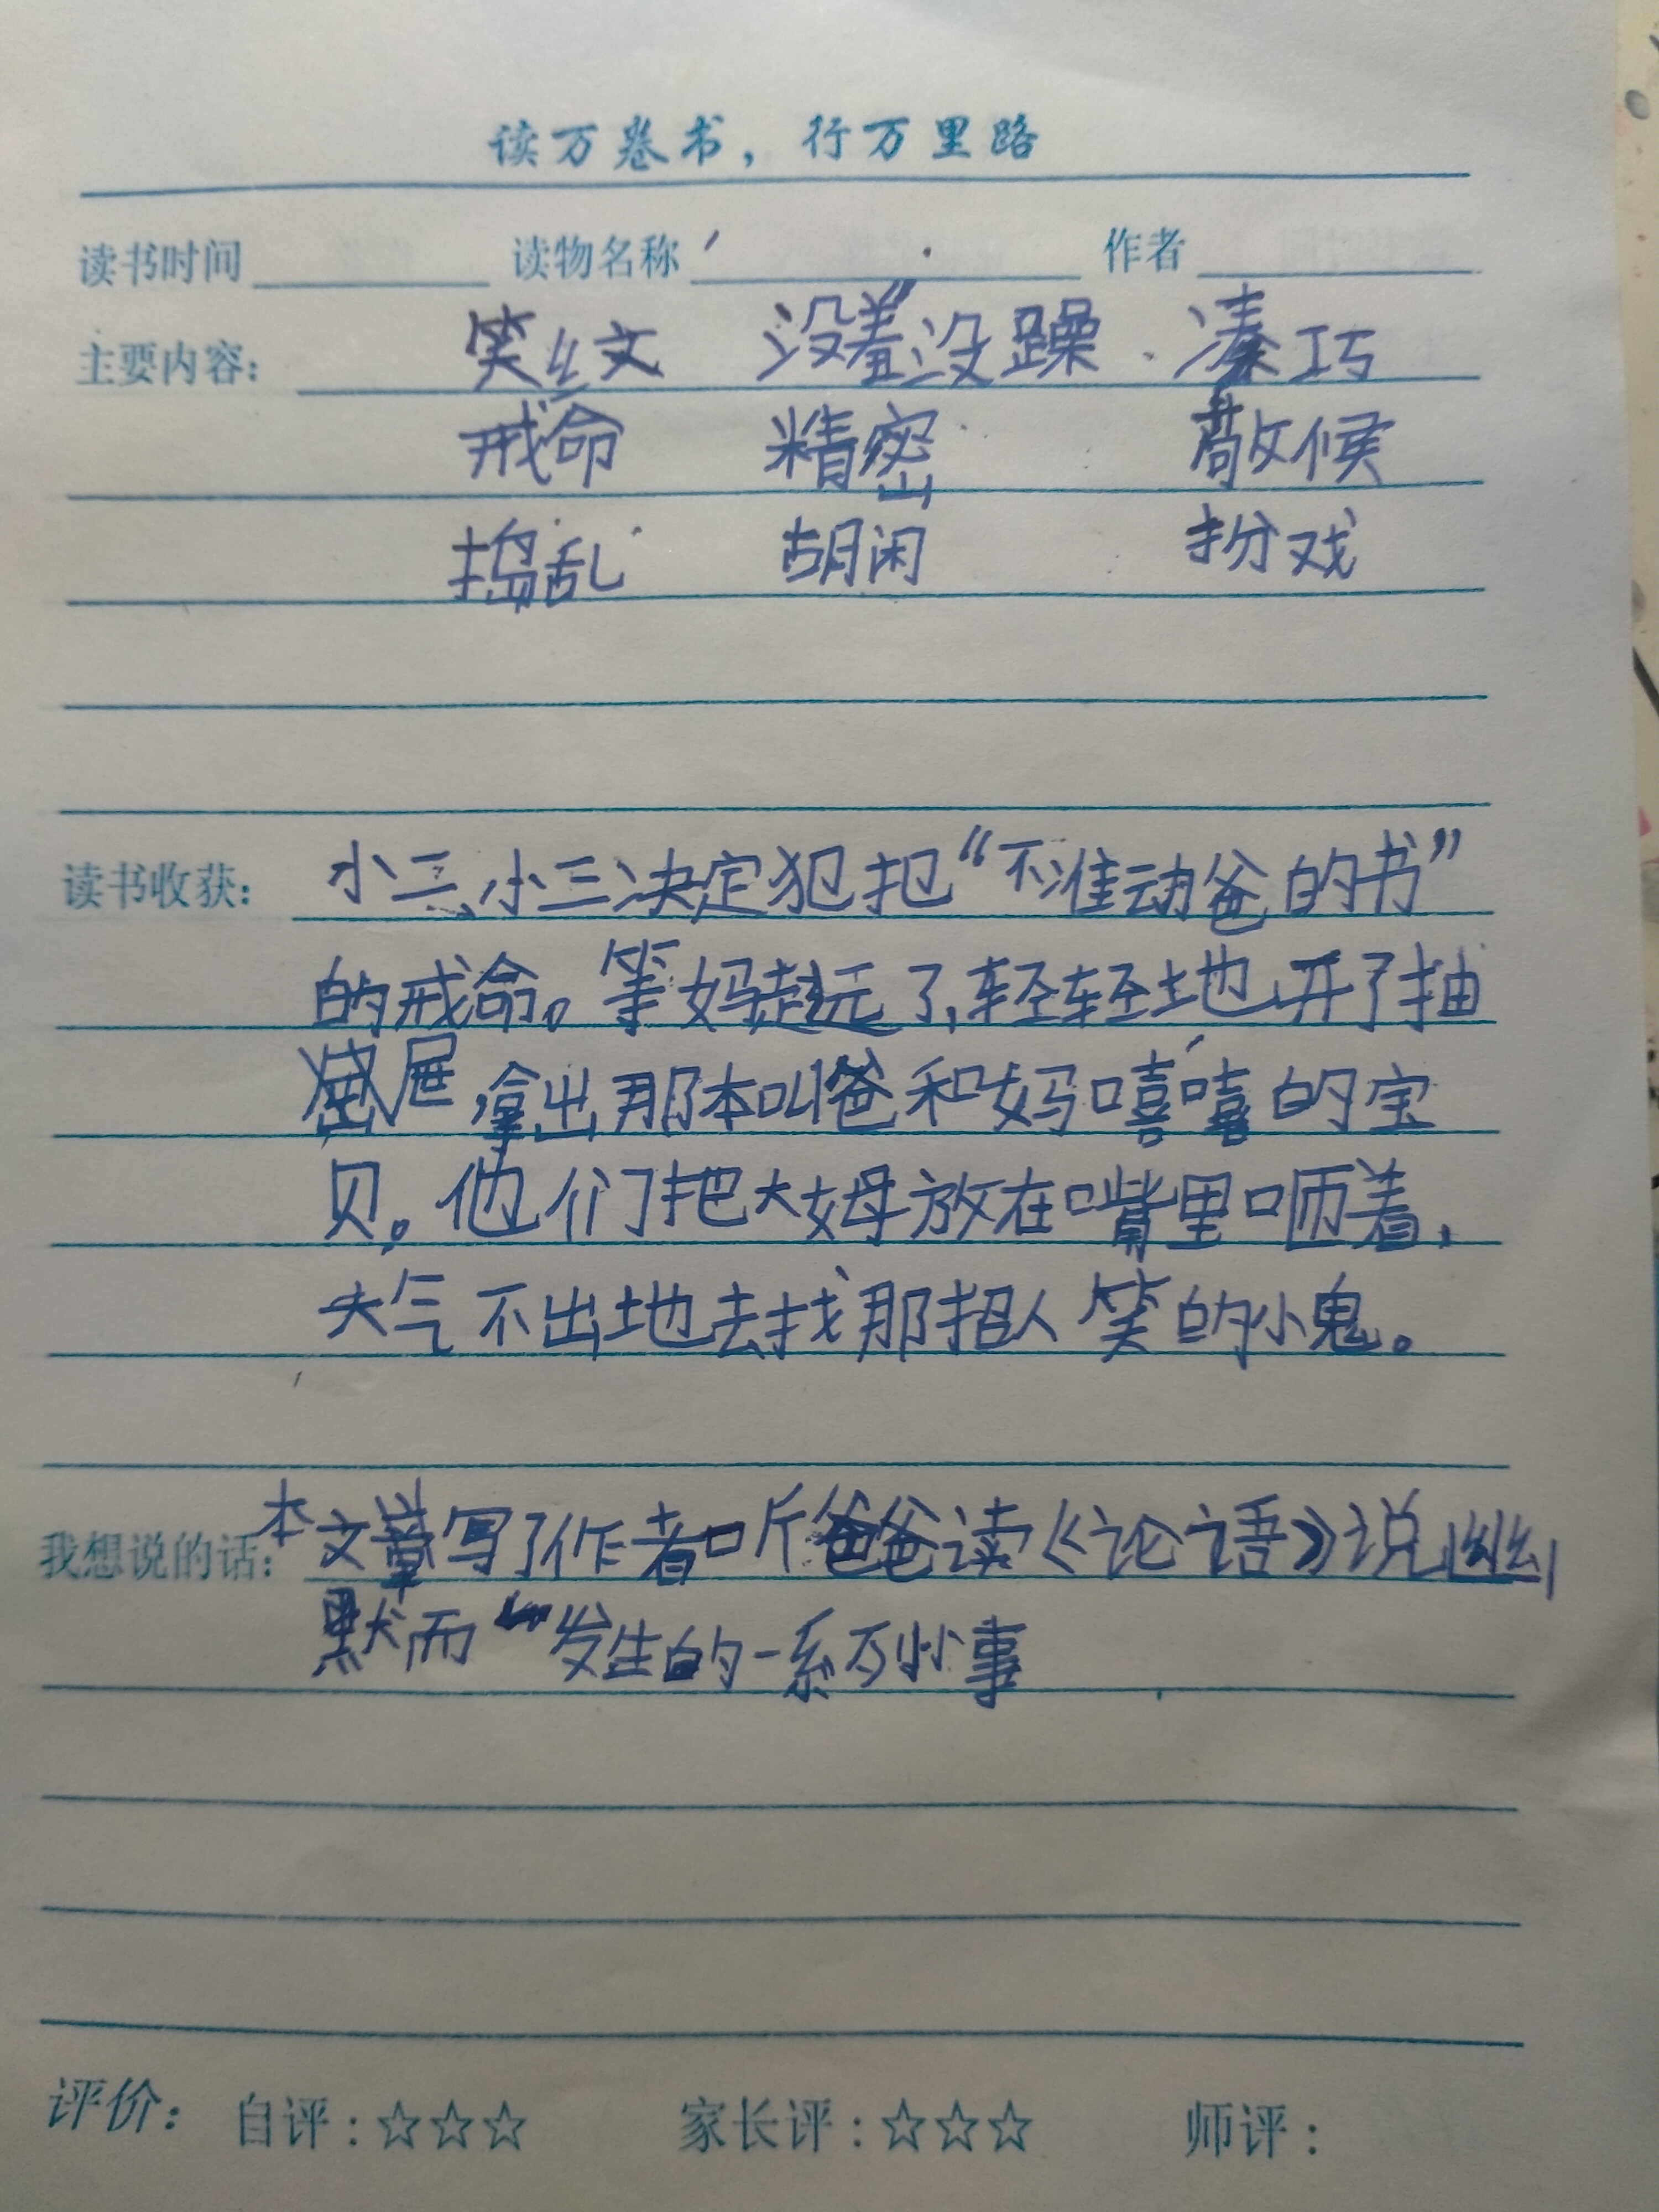 读万卷书，行万里路
读书时间 读物名称 作者
主要内容： 笑纹 没羞没躁 凑巧
戒命 精密 敲候
捣乱 胡闲 扮戏
读书收获： 小二、小三决定犯把“不准动爸的书”
的戒命。等妈趑远了，轻轻地开了抽
屉，拿出那本叫爸和妈嘻嘻的宝
贝。他们把大姆放在嘴里咂着，
大气不出地去找那招人笑的小鬼。
我想说的话： 本文章写了作者听爸爸读《论语》说幽
默而发生的一系列小事
评价： 自评：☆☆☆ 家长评：☆☆☆ 师评：